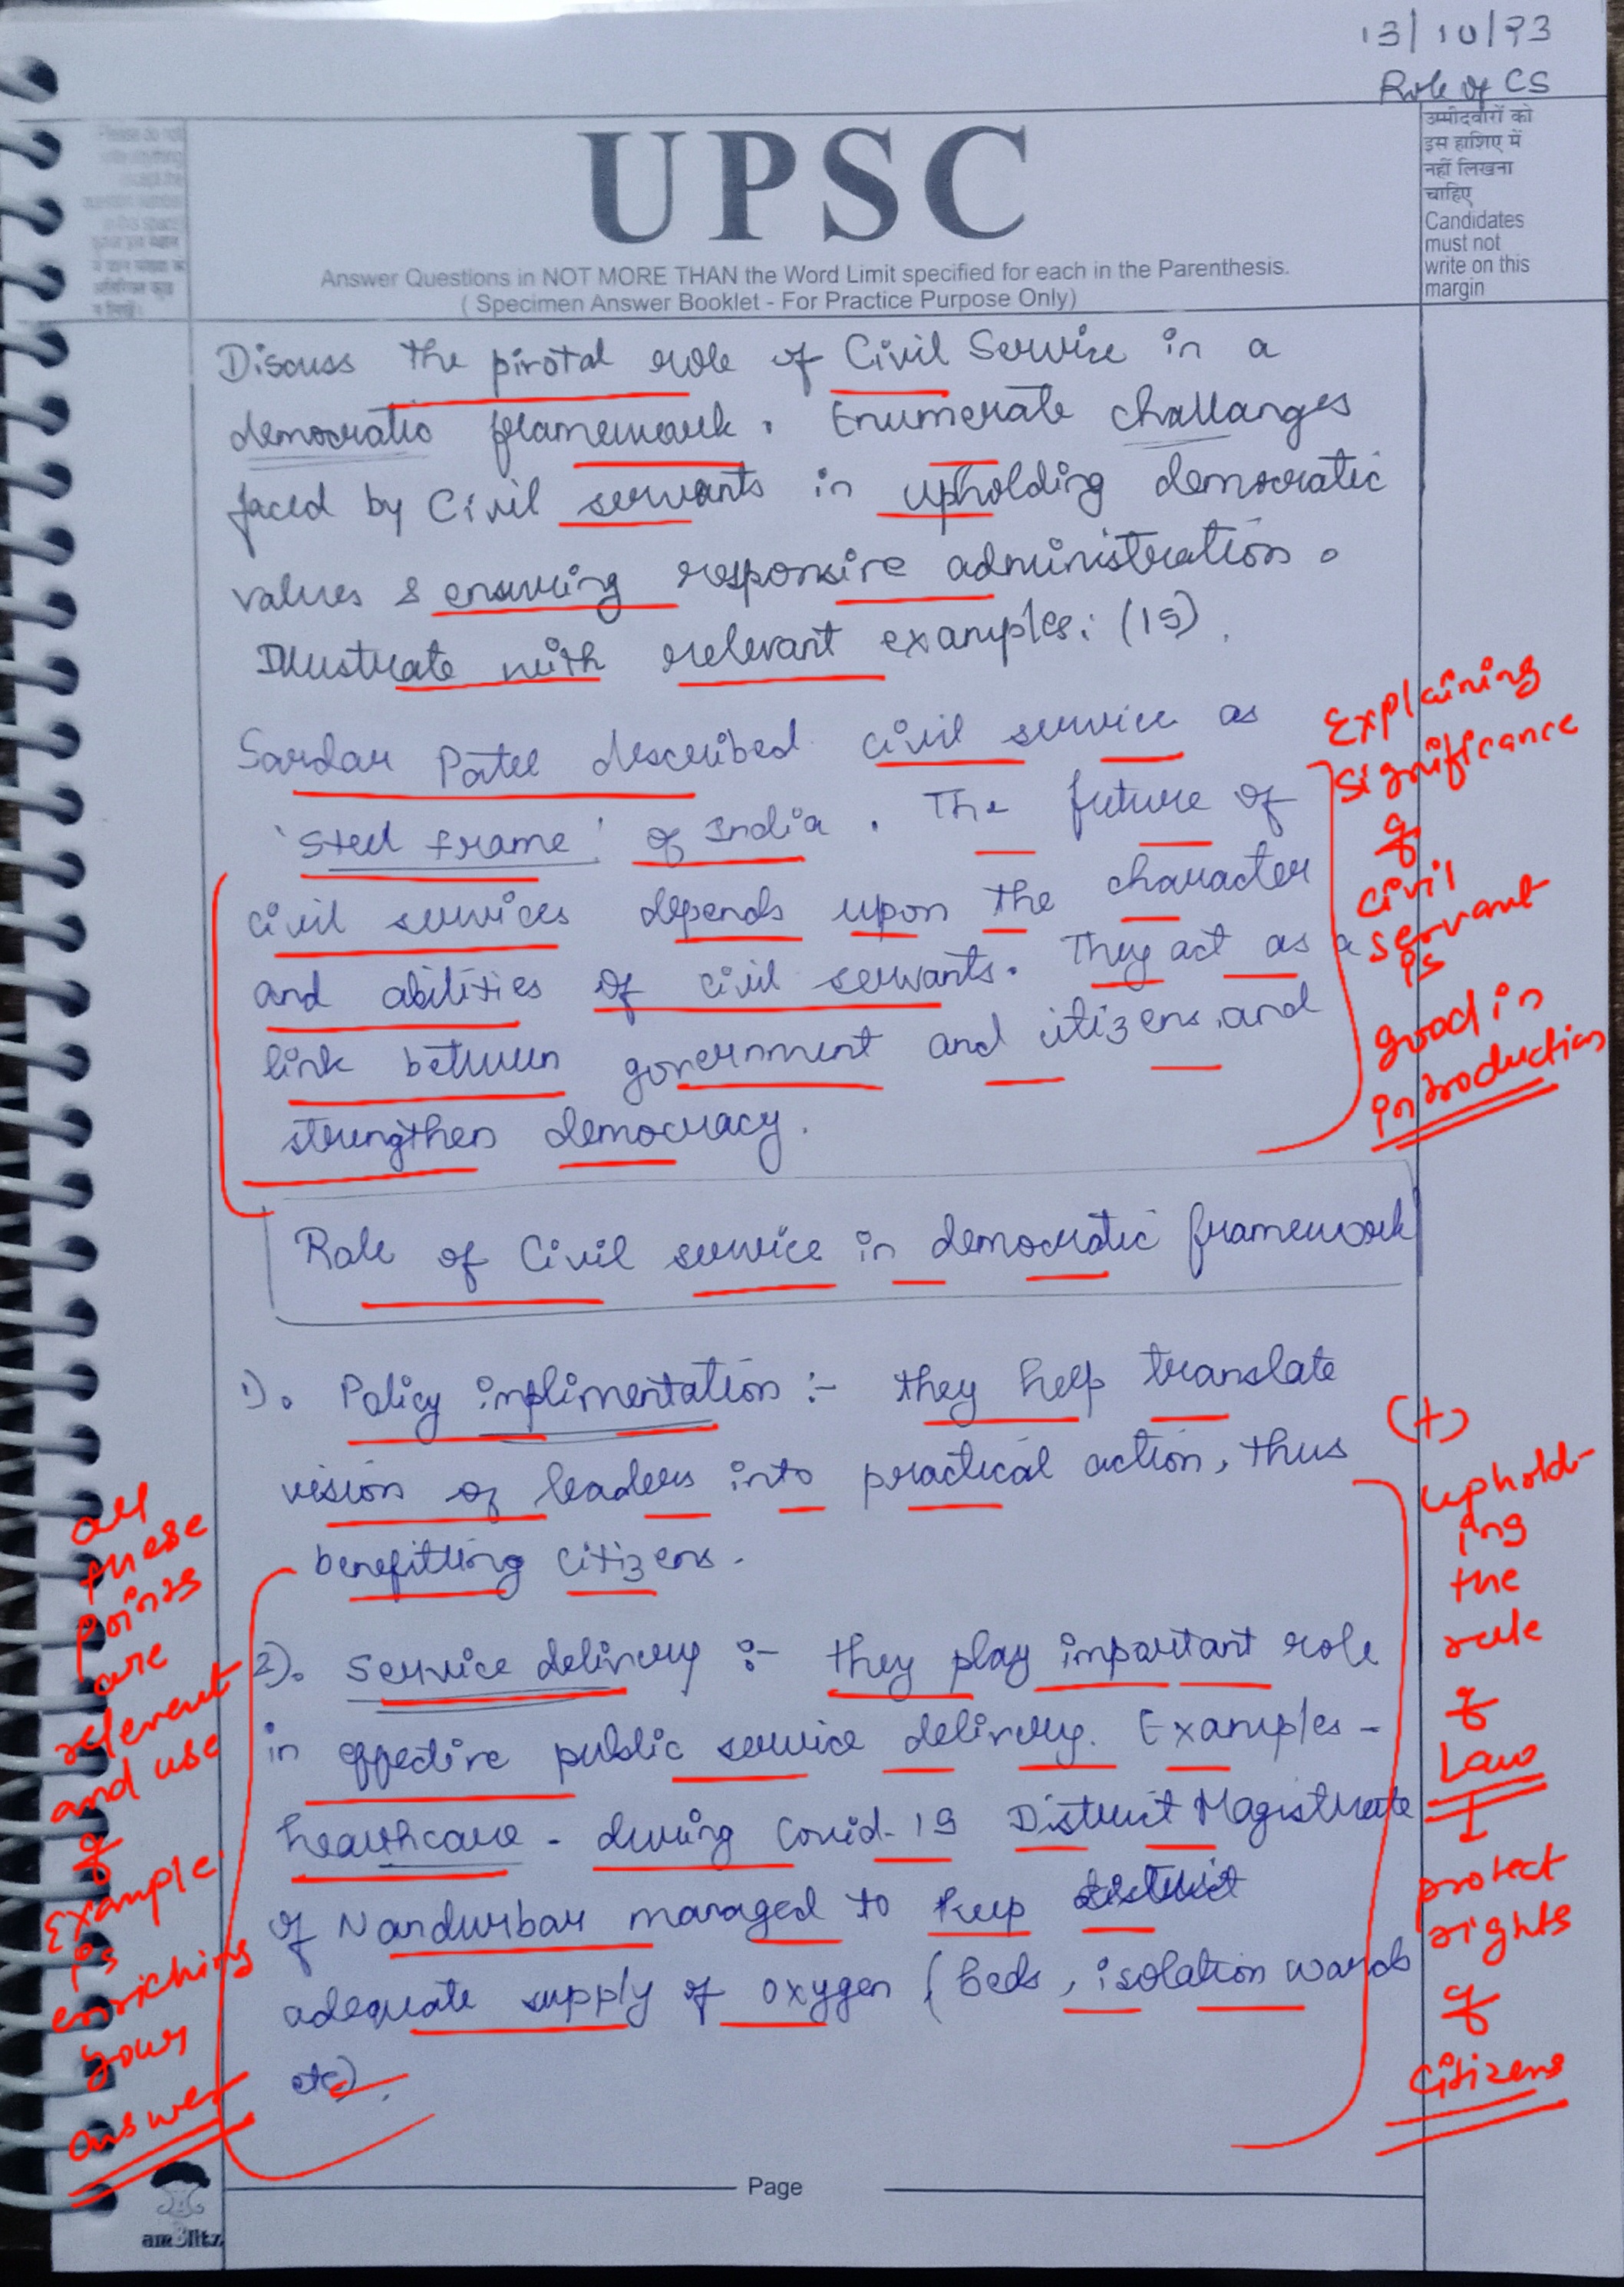 13/10/23
Role of CS
उम्मीदवारों को
इस हाशिए में
नहीं लिखना
चाहिए
Candidates
must not
write on this
margin
UPSC
Answer Questions in NOT MORE THAN the Word Limit specified for each in the Parenthesis.
( Specimen Answer Booklet - For Practice Purpose Only)
Discuss the pivotal role of Civil Service in a
democratic framework. Enumerate challanges
faced by Civil servants in upholding democratic
values & ensuring responsive administration.
Illustrate with relevant examples. (15).
Sardar Patel described civil service as
'steel frame' of India. The future of
civil services depends upon the character
and abilities of civil servants. They act as a
link between government and citizens, and
strengthen democracy.
Explaining
significance
of
civil
servant
is
good in
introduction
Role of Civil service in democratic framework
1). Policy implimentation :- they help translate
vision of leaders into practical action, thus
benefitting citizens.
2). Service delivery :- they play important role
in effective public service delivery. Examples -
healthcare - during Covid-19 District Magistrate
of Nandurbar managed to keep district
adequate supply of oxygen (beds, isolation wards
etc).
all
these
points
are
relevent
and use
of
Example
is
enriching
your
answer
(+)
uphold-
ing
the
rule
of
Law
I
protect
rights
of
citizens
Page